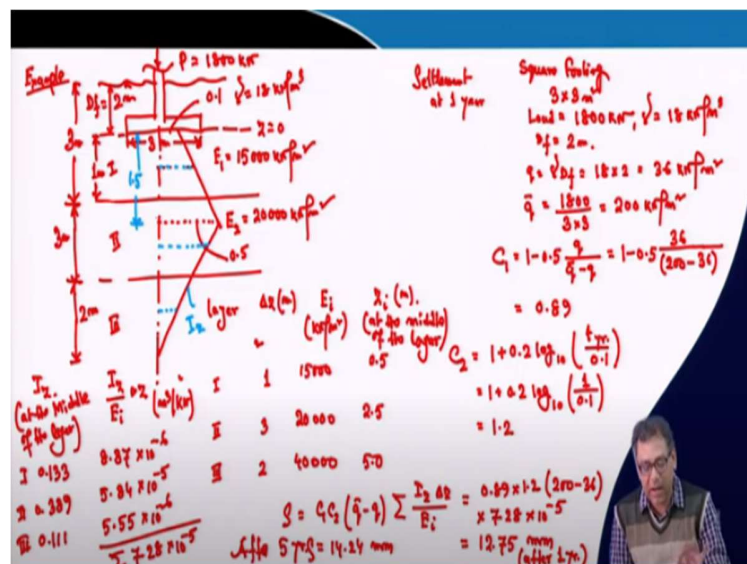 Example
P = 1800 kN
Df = 2m
0.1
γ = 18 kN/m³
3m
z=0
3 m
1m
I
1.5
E₁ = 15000 kN/m²
3m
II
E₂ = 20000 kN/m²
0.5
2m
III
I_z
Settlement
at 1 year
Square footing
3×3m²
Load = 1800 kN, γ = 18 kN/m³
Df = 2m.
q = γDf = 18×2 = 36 kN/m²
q̄ = 1800/(3×3) = 200 kN/m²
C₁ = 1-0.5 q/(q̄-q) = 1-0.5 36/(200-36)
= 0.89
C₂ = 1+0.2 log₁₀ (t yr./0.1)
= 1+0.2 log₁₀ (1/0.1)
= 1.2
layer Δz(m) E_i (kN/m²) z_i (m). (at the middle of the layer)
I 1 15000 0.5
II 3 20000 2.5
III 2 40000 5.0
I_z (at the middle of the layer) I_z/E_i Δz (m³/kN)
I 0.133 8.87×10⁻⁶
II 0.389 5.84×10⁻⁵
III 0.111 5.55×10⁻⁶
Σ 7.28×10⁻⁵
S = C₁C₂ (q̄-q) Σ I_z Δz/E_i = 0.89×1.2 (200-36)
× 7.28×10⁻⁵
= 12.75 mm
(after 1 yr.)
After 5 yr S = 14.24 mm